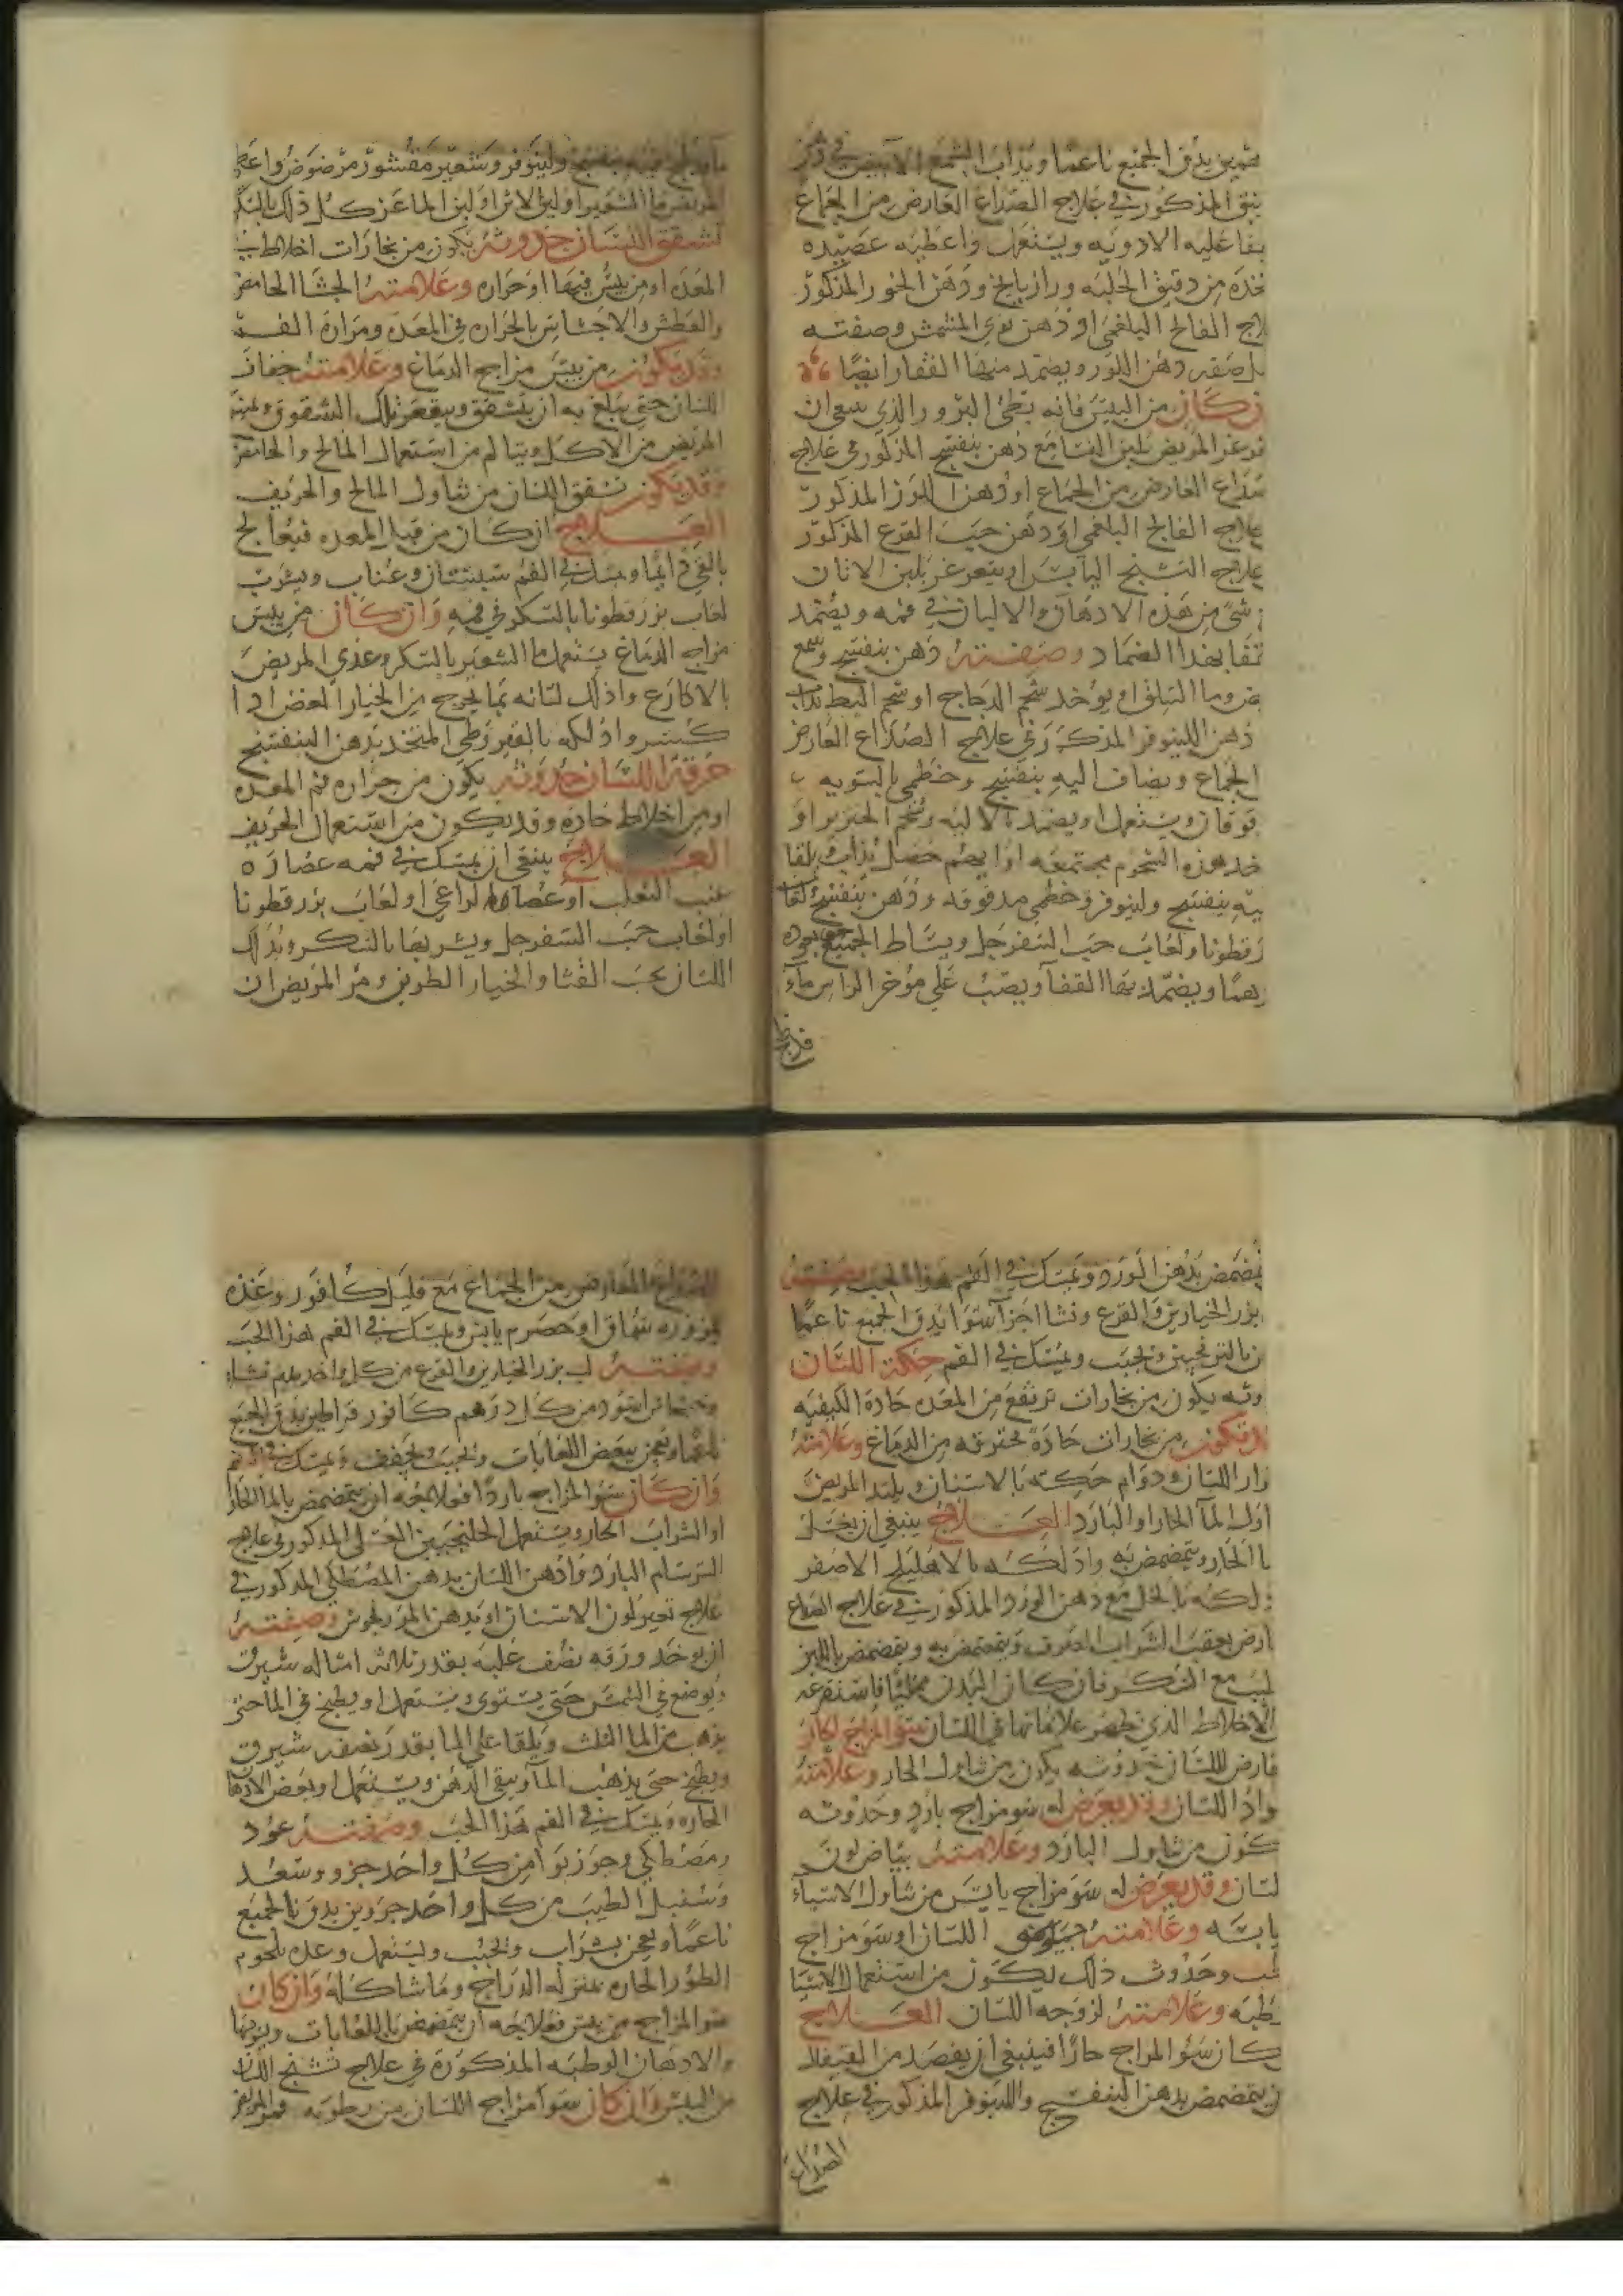 يدق الجميع ناعما ويذاب الشمع الابيض في دهن
المذكور في علاج الصداع العارض من الجماع
عليه الادويه ويستعمل واعطيه عصيده
من دقيق الحلبه ورازيانج ودهن الجوز المذكور
الفالج البلغمي او دهن نوى المشمش وصفته
صفه دهن اللوز ويضمد منها القفار ايضا
ن كان من اليبس فانه بطئ البرو والذي ينبغي ان
المريض بلبن النسا مع دهن بنفسج المذكور في علاج
العارض من الجماع او دهن اللوز المذكور
علاج الفالج البلغمي او دهن حب القرع المذكور
علاج التشنج اليابس او يتغرغر بلبن الاتان
شي من هذه الادهان والالبان في فمه ويضمد
بهذا الضماد وصفته دهن بنفسج وشمع
وما السلق او يوخد شحم الدجاج او شحم البط يذاب
دهن اللينوفر المذكور في علاج الصداع العارض
الجماع ويضاف اليه بنفسج وخطمي بالسويه
ويستعمل او يضمد بالاليه وشحم الخنزير او
هذه الشحوم مجتمعه او ايهم حصل يذاب ويلقا
بنفسج ولينوفر وخطمي مدقوقه ودهن بنفسج ولعاب
رقطونا ولعاب حب السفرجل ويساط الجميع
ويضمد بها القفا ويصب على مؤخر الراس ماء
بنفسج ولينوفر وشعير مقشور مرضوض واعط
المريض ما الشعير او لبن الاتن او لبن الماعز كل ذلك بالسكر
تشقق اللسان حدوثه يكون من بخارات اخلاط في
المعده او من يبس فيها او حراره وعلامته الجشا الحامض
والعطش والاحساس بالحراره في المعده ومرارة الفم
وقد يكون من يبس مزاج الدماغ وعلامته جفاف
اللسان حتى يبلغ به ان يتشقق ويبقعر تلك الشقوق ويمنع
المريض من الاكل ويتالم من استعمال المالح والحامض
وقد يكون تشقق اللسان من تناول المالح والحريف
العلاج ان كان من قبل المعده فيعالج
بالقي دايما ويمسك في الفم سبستان وعناب ويشرب
لعاب بزر قطونا بالسكر في فمه وان كان من يبس
مزاج الدماغ يستعمل ما الشعير بالسكر وغذي المريض
بالاكارع وادلك لسانه بما يخرج من الخيار الغض اذا
كسر وادلكه بالقيروطي المتخذ بدهن البنفسج
حرقة اللسان حدوثه يكون من حراره فم المعده
او من اخلاط حاده وقد يكون من استعمال الحريف
العلاج ينبغي ان يمسك في فمه عصاره
عنب الثعلب او عصا الراعي او لعاب بزر قطونا
او لعاب حب السفرجل ويشربها بالسكر ويدلك
اللسان بحب القثا والخيار الطويل ومر المريض ان
يتمضمض بدهن الورد ويمسك في الفم هذا الحب وصفته
بزر الخيارين والقرع ونشا اجزا سوا يدق الجميع ناعما
بالترنجبين ويحبب ويمسك في الفم حكة اللسان
يكون من بخارات ترتفع من المعده حادة الكيفيه
تكون من بخارات حادة محترقه من الدماغ وعلامته
اللسان ودوام حكته بالاسنان ويلتد المريض
الما الحار او البارد العلاج ينبغي ان يغسل
الحار ويتمضمض به وادلكه بالاهليلج الاصفر
بالخل مع دهن الورد المذكور في علاج الصداع
بعقب الشراب الصرف ويتمضمض به ويتمضمض باللبن
مع السكر فان كان البدن ممتليا فاستفرغه
الاخلاط الذي تظهر علاماتها في اللسان سو المزاج الحار
عارض للسان حدوثه يكون من تناول الحار وعلامته
اللسان وقد يعرض له سو مزاج بارد وحدوثه
من تناول البارد وعلامته بياض لون
لسان وقد يعرض له سو مزاج يابس من تناول الاشياء
يابسه وعلامته اللسان او سو مزاج
وحدوث ذلك يكون من استعمال الاشيا
وعلامته لزوجه اللسان العلاج
كان سو المزاج حارا فينبغي ان يفصد من القيفال
يتمضمض بدهن البنفسج واللينوفر المذكور في علاج
الصداع
الصداع العارض من الجماع مع قليل كافور وغذه
بمزوره سماق او حصرم يابس ويمسك في الفم هذا الحب
وصفته لب بزر الخيارين والقرع من كل واحد درهم نشا
وخشخاش اسود من كل درهم كافور قيراطين يدق الجميع
ناعما ويعجن ببعض اللعابات ويحبب ويجفف ويمسك في الفم
وان كان سو المزاج باردا فعلاجه ان يتمضمض بالما الحار
او الشراب الحار ويستعمل الجلنجبين العسلي المذكور في علاج
السرسام البارد وادهن اللسان بدهن المصطكي المذكور في
علاج تغير لون الاسنان او بدهن المرزنجوش وصفته
ان يوخد ورقه نضف عليه بقدر ثلاثه امثاله شيرق
ويوضع في الشمس حتى يستوى ويستعمل او يطبخ في الما حتى
يذهب من الما الثلث ويلقا على الما بقدر نصفه شيرق
ويطبخ حتى يذهب المآ ويبقى الدهن ويستعمل او بعض الادهان
الحاره ويمسك في الفم هذا الحب وصفته عود
ومصطكي وجوز بوا من كل واحد جزو وسعد
وسنبل الطيب من كل واحد جزوين يدق الجميع
ناعما ويعجن بشراب ويحبب ويستعمل وغده بلحوم
الطيور الحاره بمنزله الدراج وما شاكله وان كان
سو المزاج من يبس فعلاجه ان يتمضمض باللعابات
والادهان الرطبه المذكورة في علاج تشنج اللسان
من اليبس وان كان سو مزاج اللسان من رطوبه فمر المريض